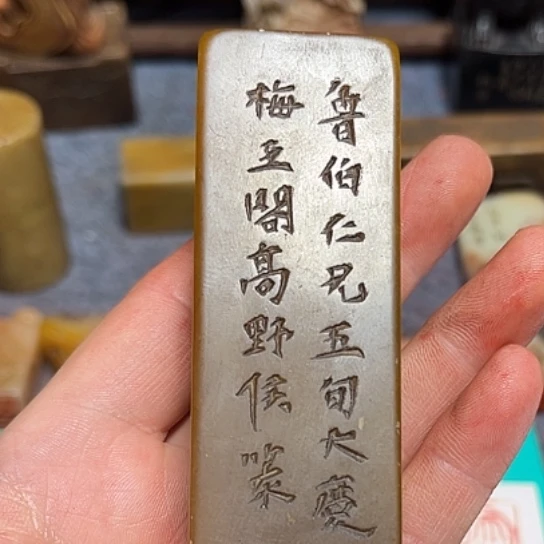 魯伯仁兄五旬大慶
梅王閣高野侯篆